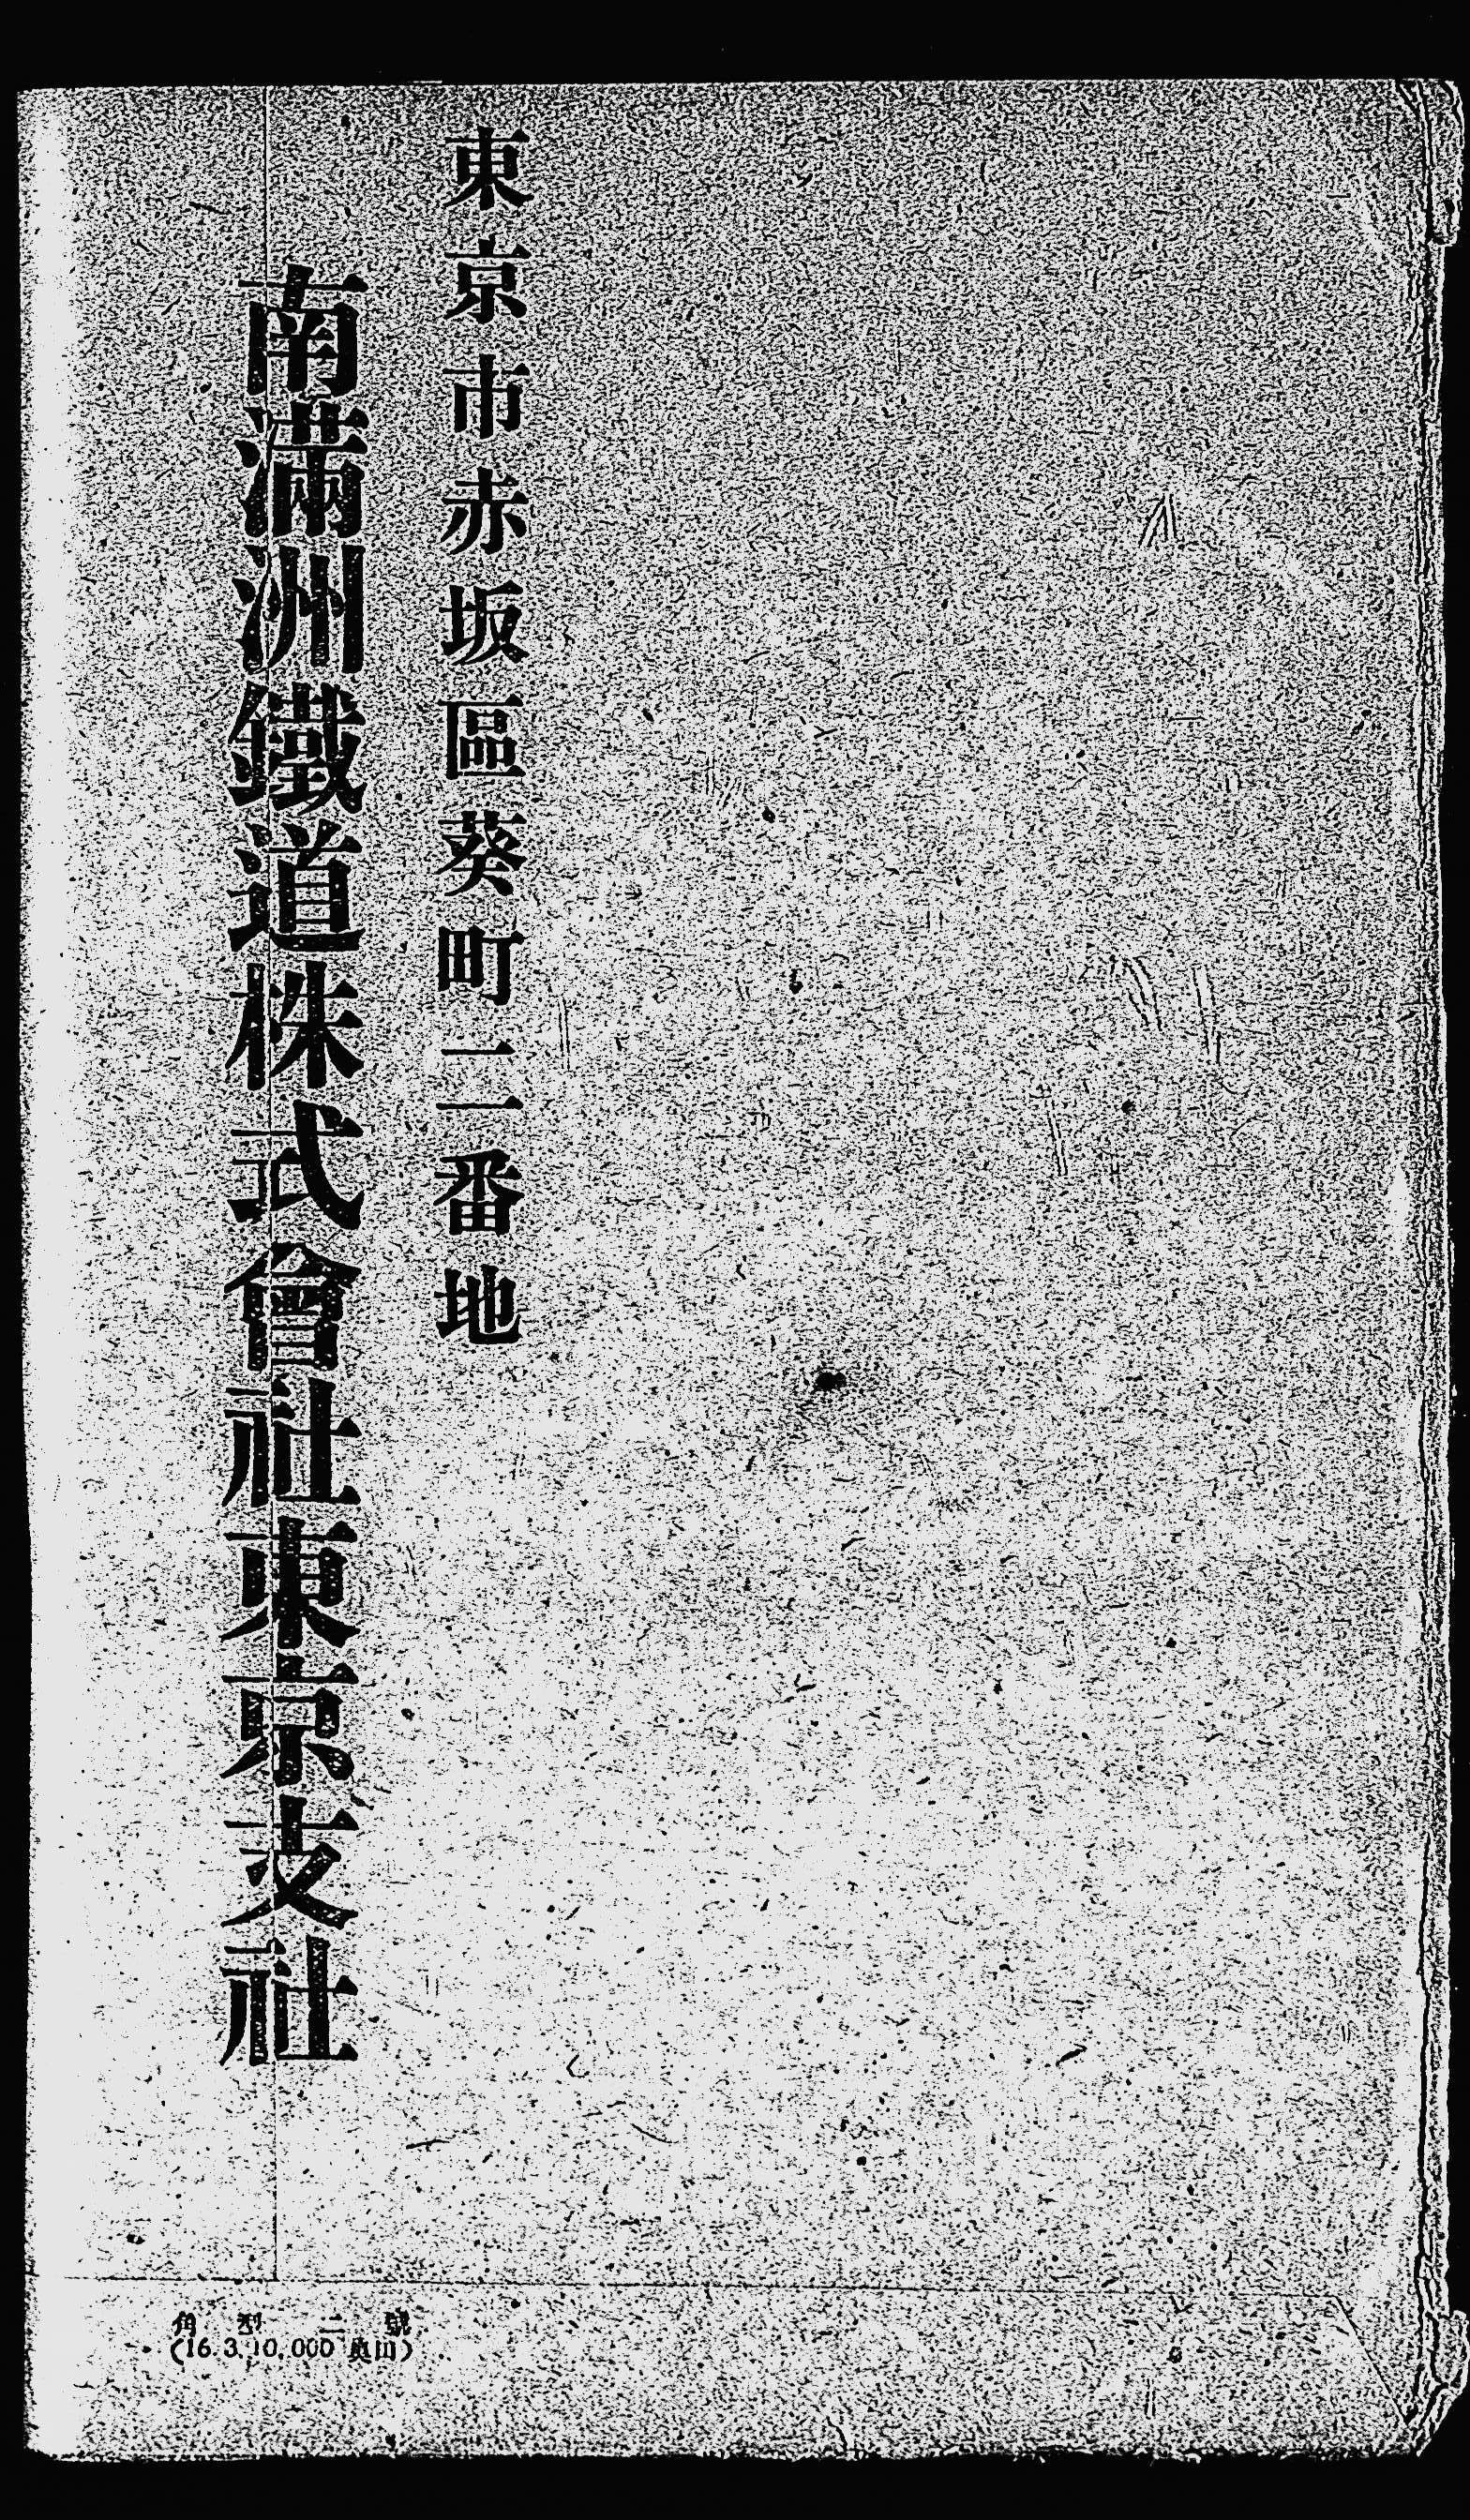 東京市赤坂區葵町二番地
南滿洲鐵道株式會社東京支社
角型二號
(16.3.10,000 奧山)